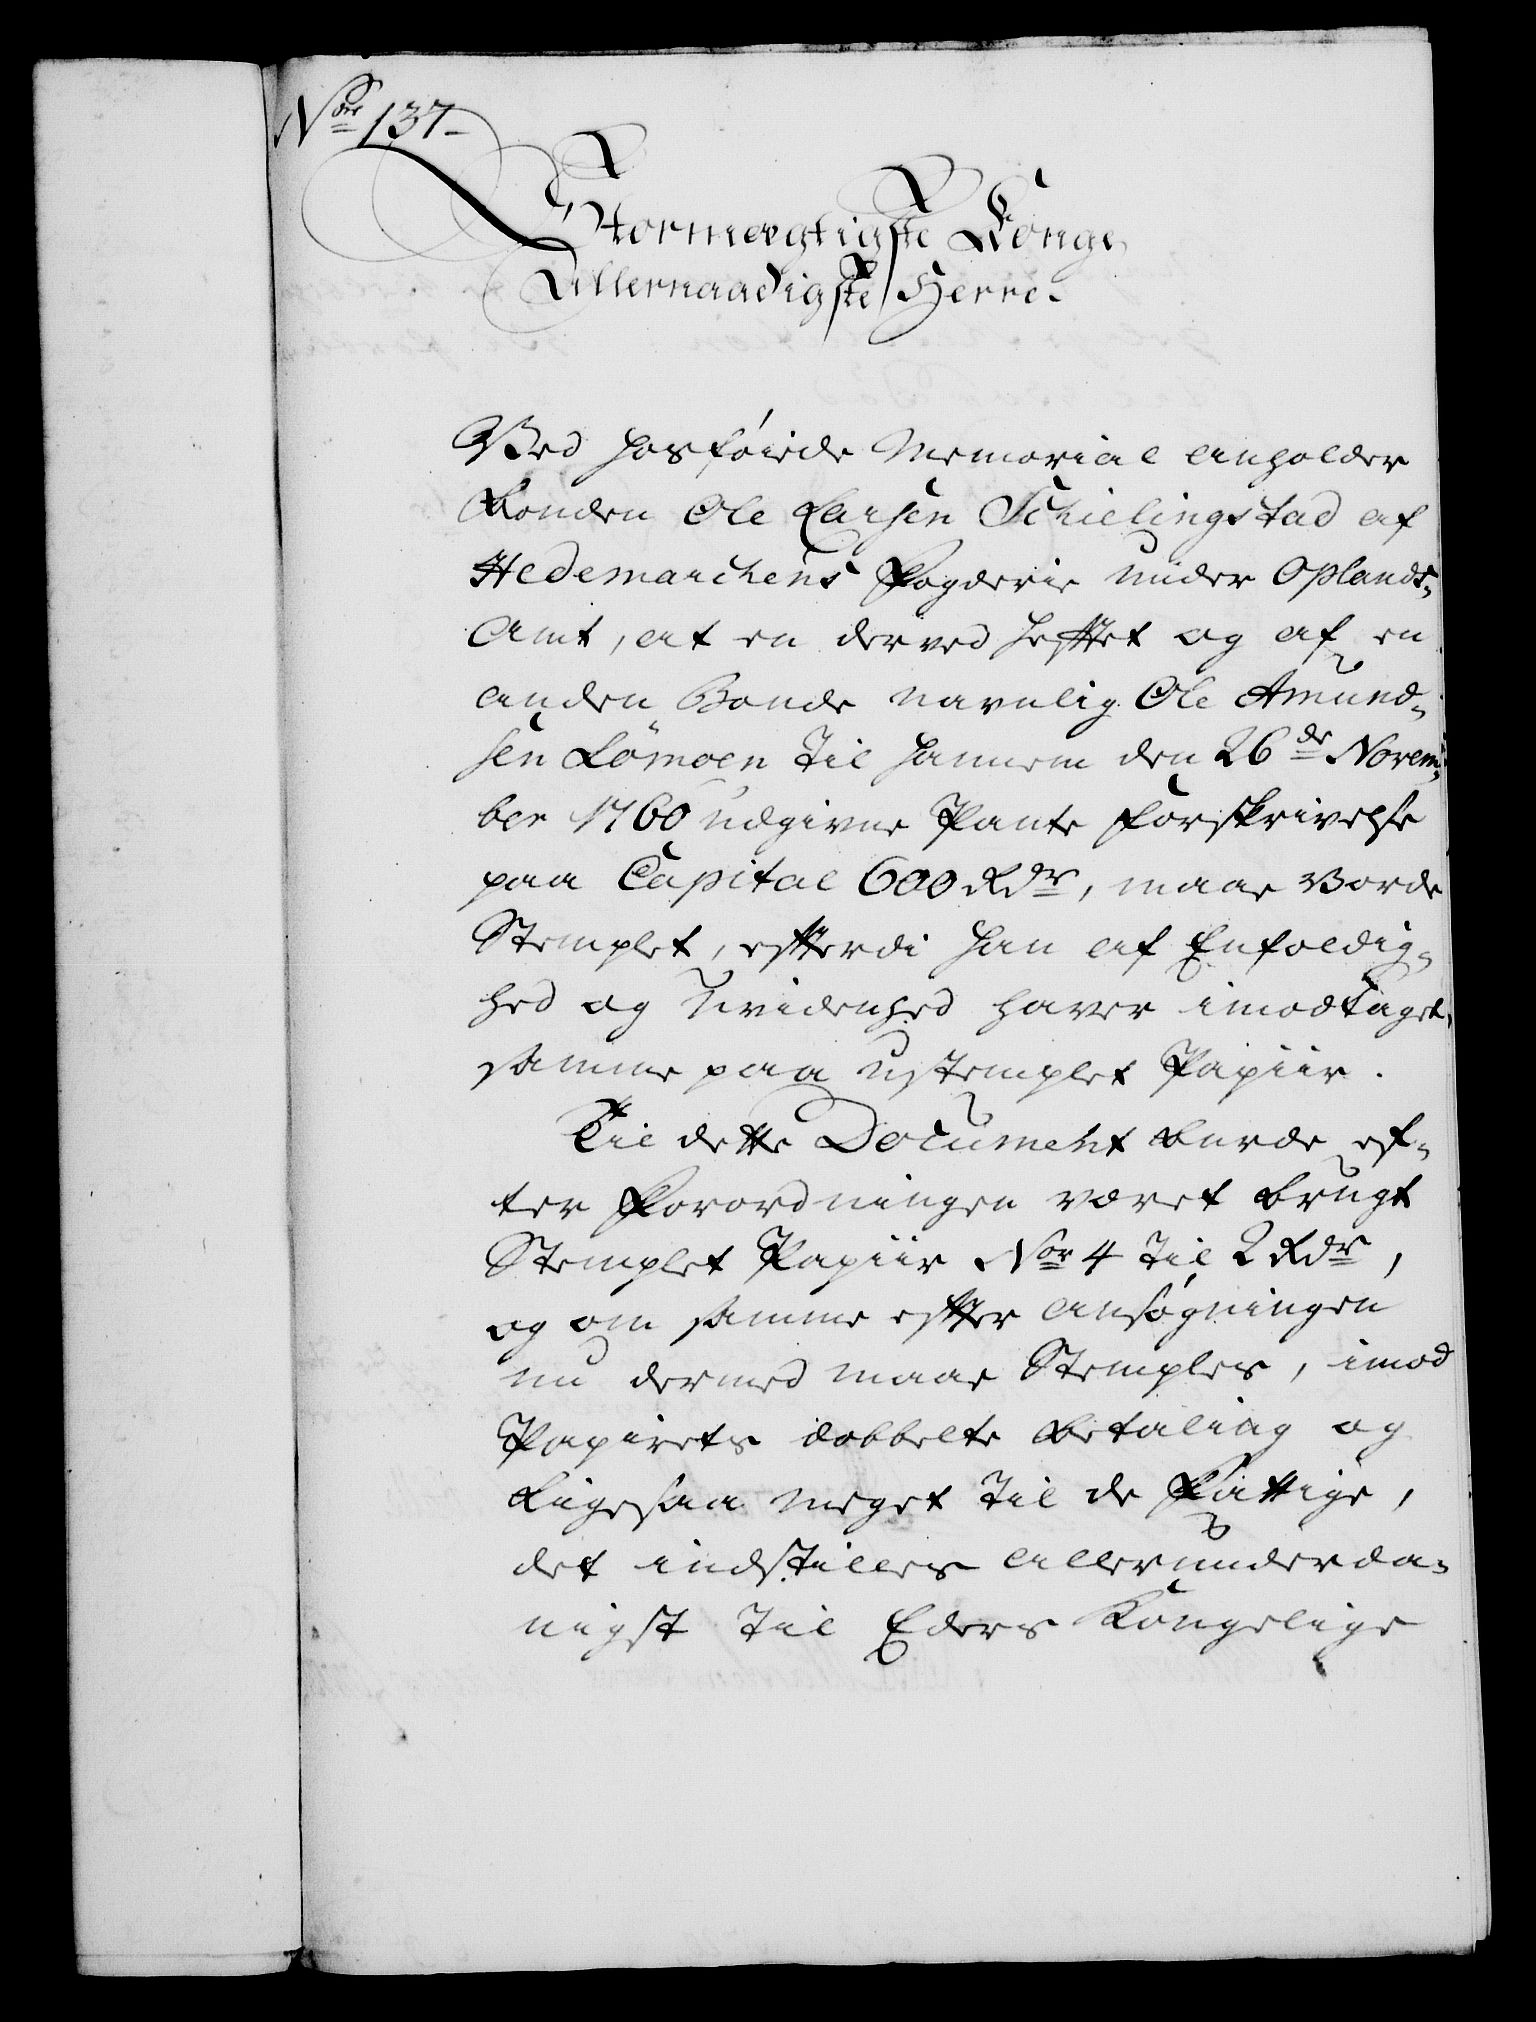 Nor 137-
Stormægtigste Konge
Allernaadigste Herre.
Ved hosføiede Memorial anholder
Bonden Ole Larsen Schielingstad af
Hedemarchens Fogderie under Oplands-
Amt, at en derved hefftet og af en
anden Bonde navnlig Ole Amund-
sen Lömoen til hannem den 26de Novem-
ber 1760 udgivne Pante Forskrivelse
paa Capital 600 Rdr, maae vorde
Stemplet, efterdi han af Enfoldig-
hed og Uvidenhed haver imodtaget
samme paa ustemplet Papiir.
Til dette Document burde ef-
ter Forordningen været brugt
Stemplet Papiir Nor 4 til 2 Rdr,
og om samme efter ansøgningen
nu dermed maae Stemples, imod
Papirets dobbelte Betaling og
Ligesaa meget til de Fattige,
det indstilles allerunderda-
nigst til Eders Kongelige